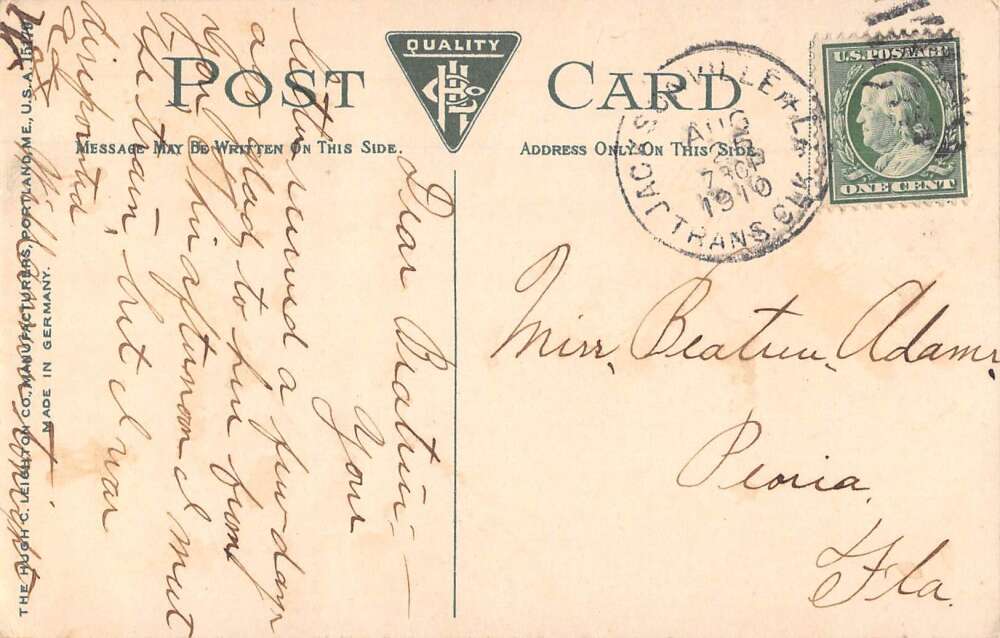 QUALITY
POST CARD
MESSAGE MAY BE WRITTEN ON THIS SIDE.
ADDRESS ONLY ON THIS SIDE
JACKSONVILLE & LA
TRANS. CLK
AUG
730
1910
U.S. POSTAGE
ONE CENT
Dear Beatrice—
Your
letter received a few days
ago glad to hear from
you this afternoon I met
the train, but I was
disappointed
Will
Miss Beatrice Adams
Peoria
Fla.
THE HUGH C. LEIGHTON CO., MANUFACTURERS, PORTLAND, ME., U.S.A.
MADE IN GERMANY.